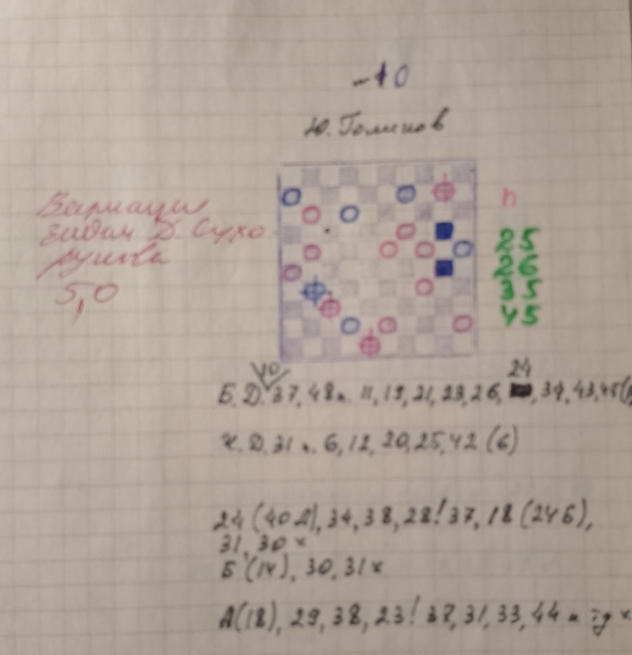 -10
Ю. Голиков
Вариация
задачи Д. Сухо
рукова
5,0
n
25
26
35
45
10 24
Б.Д. 37, 48 п. 11, 19, 21, 23, 26, 34, 43, 45
Ч.Д. 31 п. 6, 12, 20, 25, 42 (6)
24 (40 А), 34, 38, 28! 37, 18 (24 Б),
31, 30 х
Б (14), 30, 31 х
А (18), 29, 38, 23! 37, 31, 33, 44 и тд х